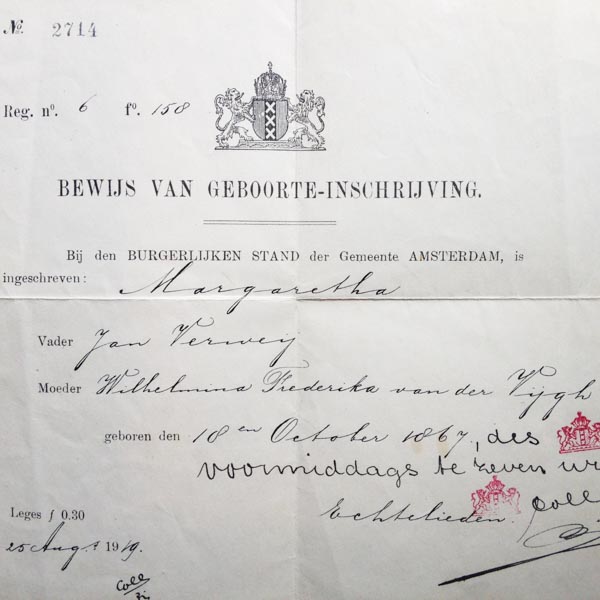 № 2714
Reg. nº. 6 fº. 158
BEWIJS VAN GEBOORTE-INSCHRIJVING.
Bij den BURGERLIJKEN STAND der Gemeente AMSTERDAM, is
ingeschreven: Margaretha
Vader Jan Verweij
Moeder Wilhelmina Frederika van der Vijgh
geboren den 18 en October 1867, des
voormiddags te zeven
Echtelieden. Coll
Leges ƒ 0.30
25 Augt 1919.
Coll